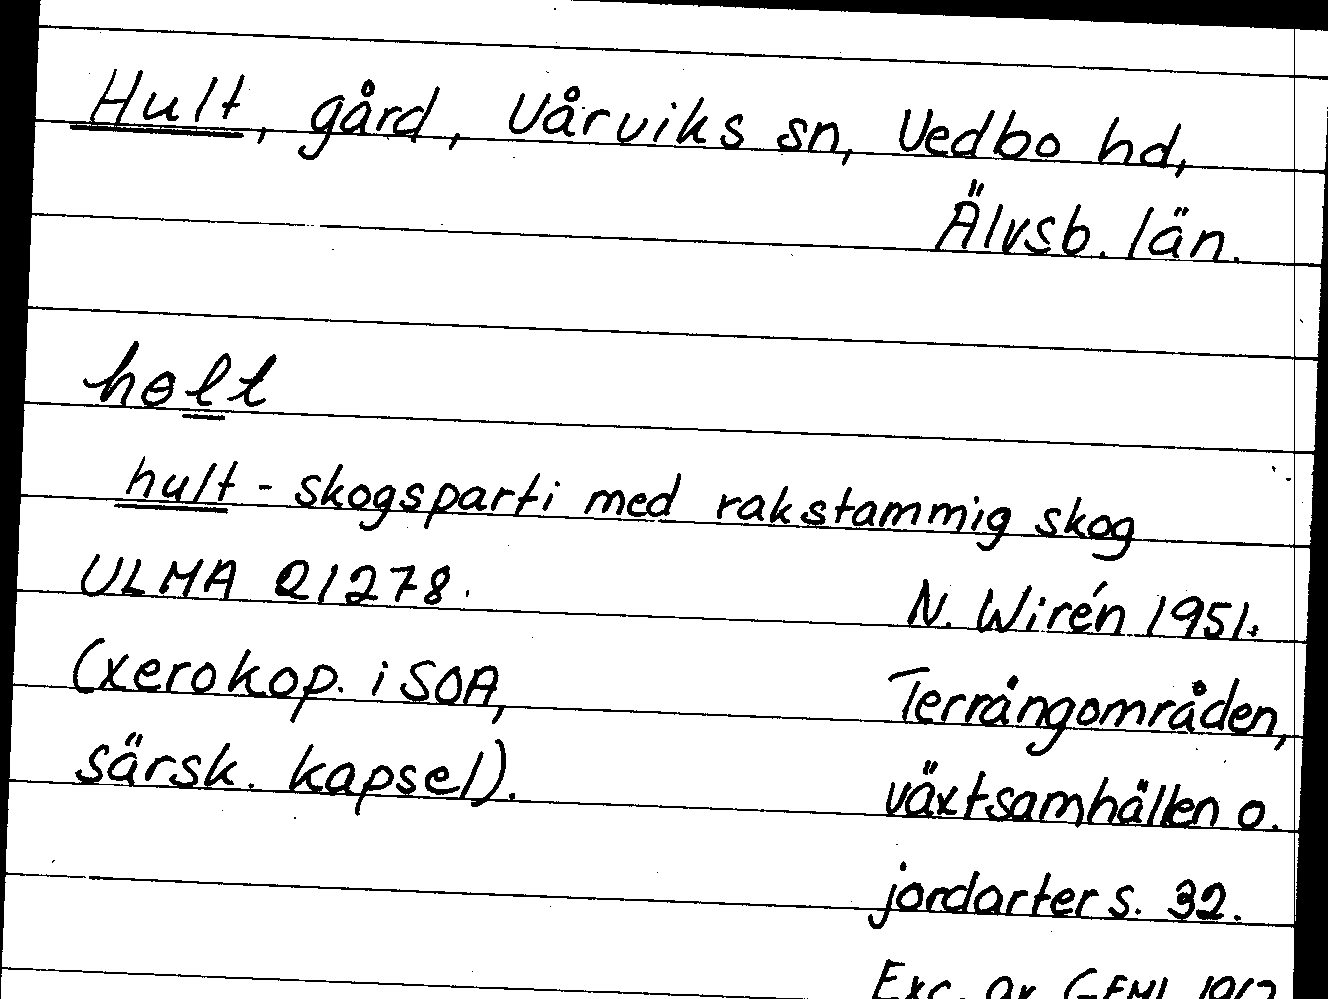 Hult, gård, Vårviks sn, Vedbo hd,
Älvsb. län.
hɵlt
hult - skogsparti med rakstammig skog
ULMA 21278.
N. Wirén 1951.
(xerokop. i SOA,
Terrängområden,
särsk. kapsel).
växtsamhällen o.
jordarter s. 32.
Exc. av